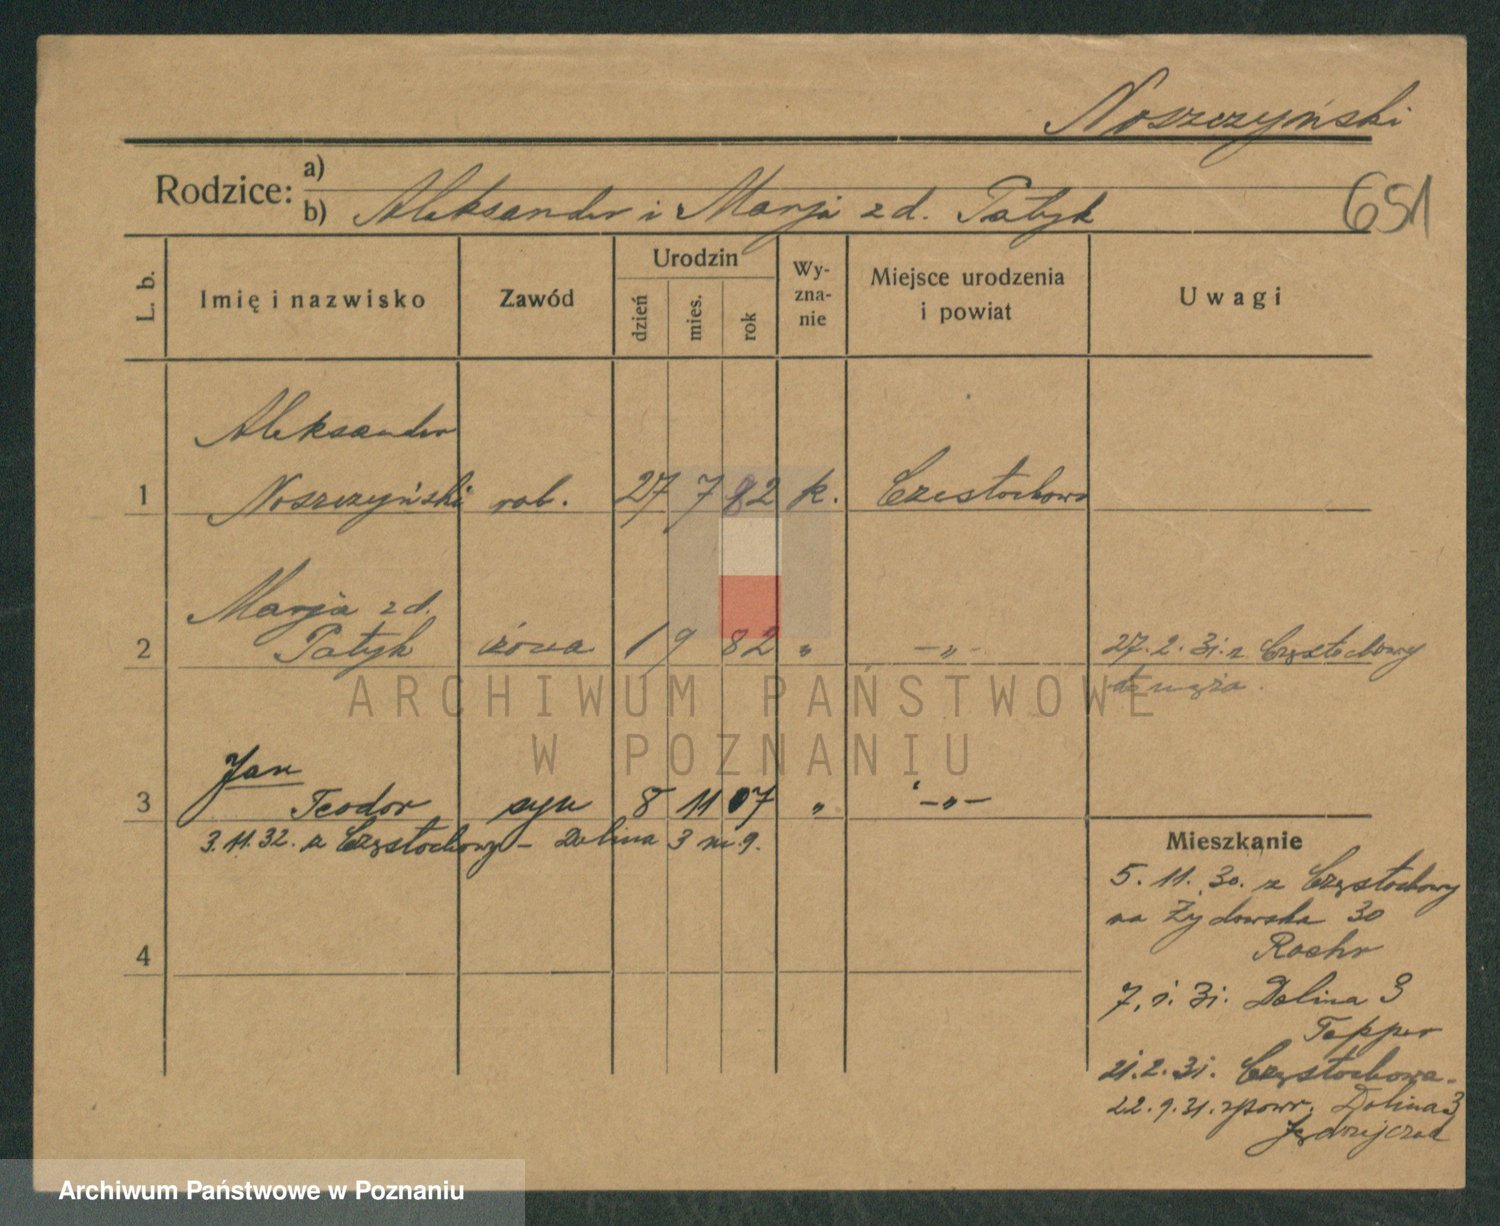 Noszczyński
Rodzice: a)
b) Aleksander i Marja z d. Patyk
651
L. b.
Imię i nazwisko
Zawód
Urodzin
dzień
mies.
rok
Wy-
zna-
nie
Miejsce urodzenia
i powiat
Uwagi
Aleksander
1 Noszczyński rob. 27 7 82 k. Czestochowa
Marja z d.
2 Patyk żona 1 9 82 „ -„- 27.2.31. z Częstochowy
do męża.
Jan
3 Teodor syn 8 11 07 „ -„-
3.11.32. z Częstochowy - Dolina 3 m 9.
4
Mieszkanie
5.11.30. z Częstochowy
na Żydowska 30
Roehr
7.1.31. Dolina 3
Tepper
21.2.31. Częstochowa.
22.9.31. zpowr. Dolina 3
Jędrzejczak
ARCHIWUM PAŃSTWOWE
W POZNANIU
Archiwum Państwowe w Poznaniu